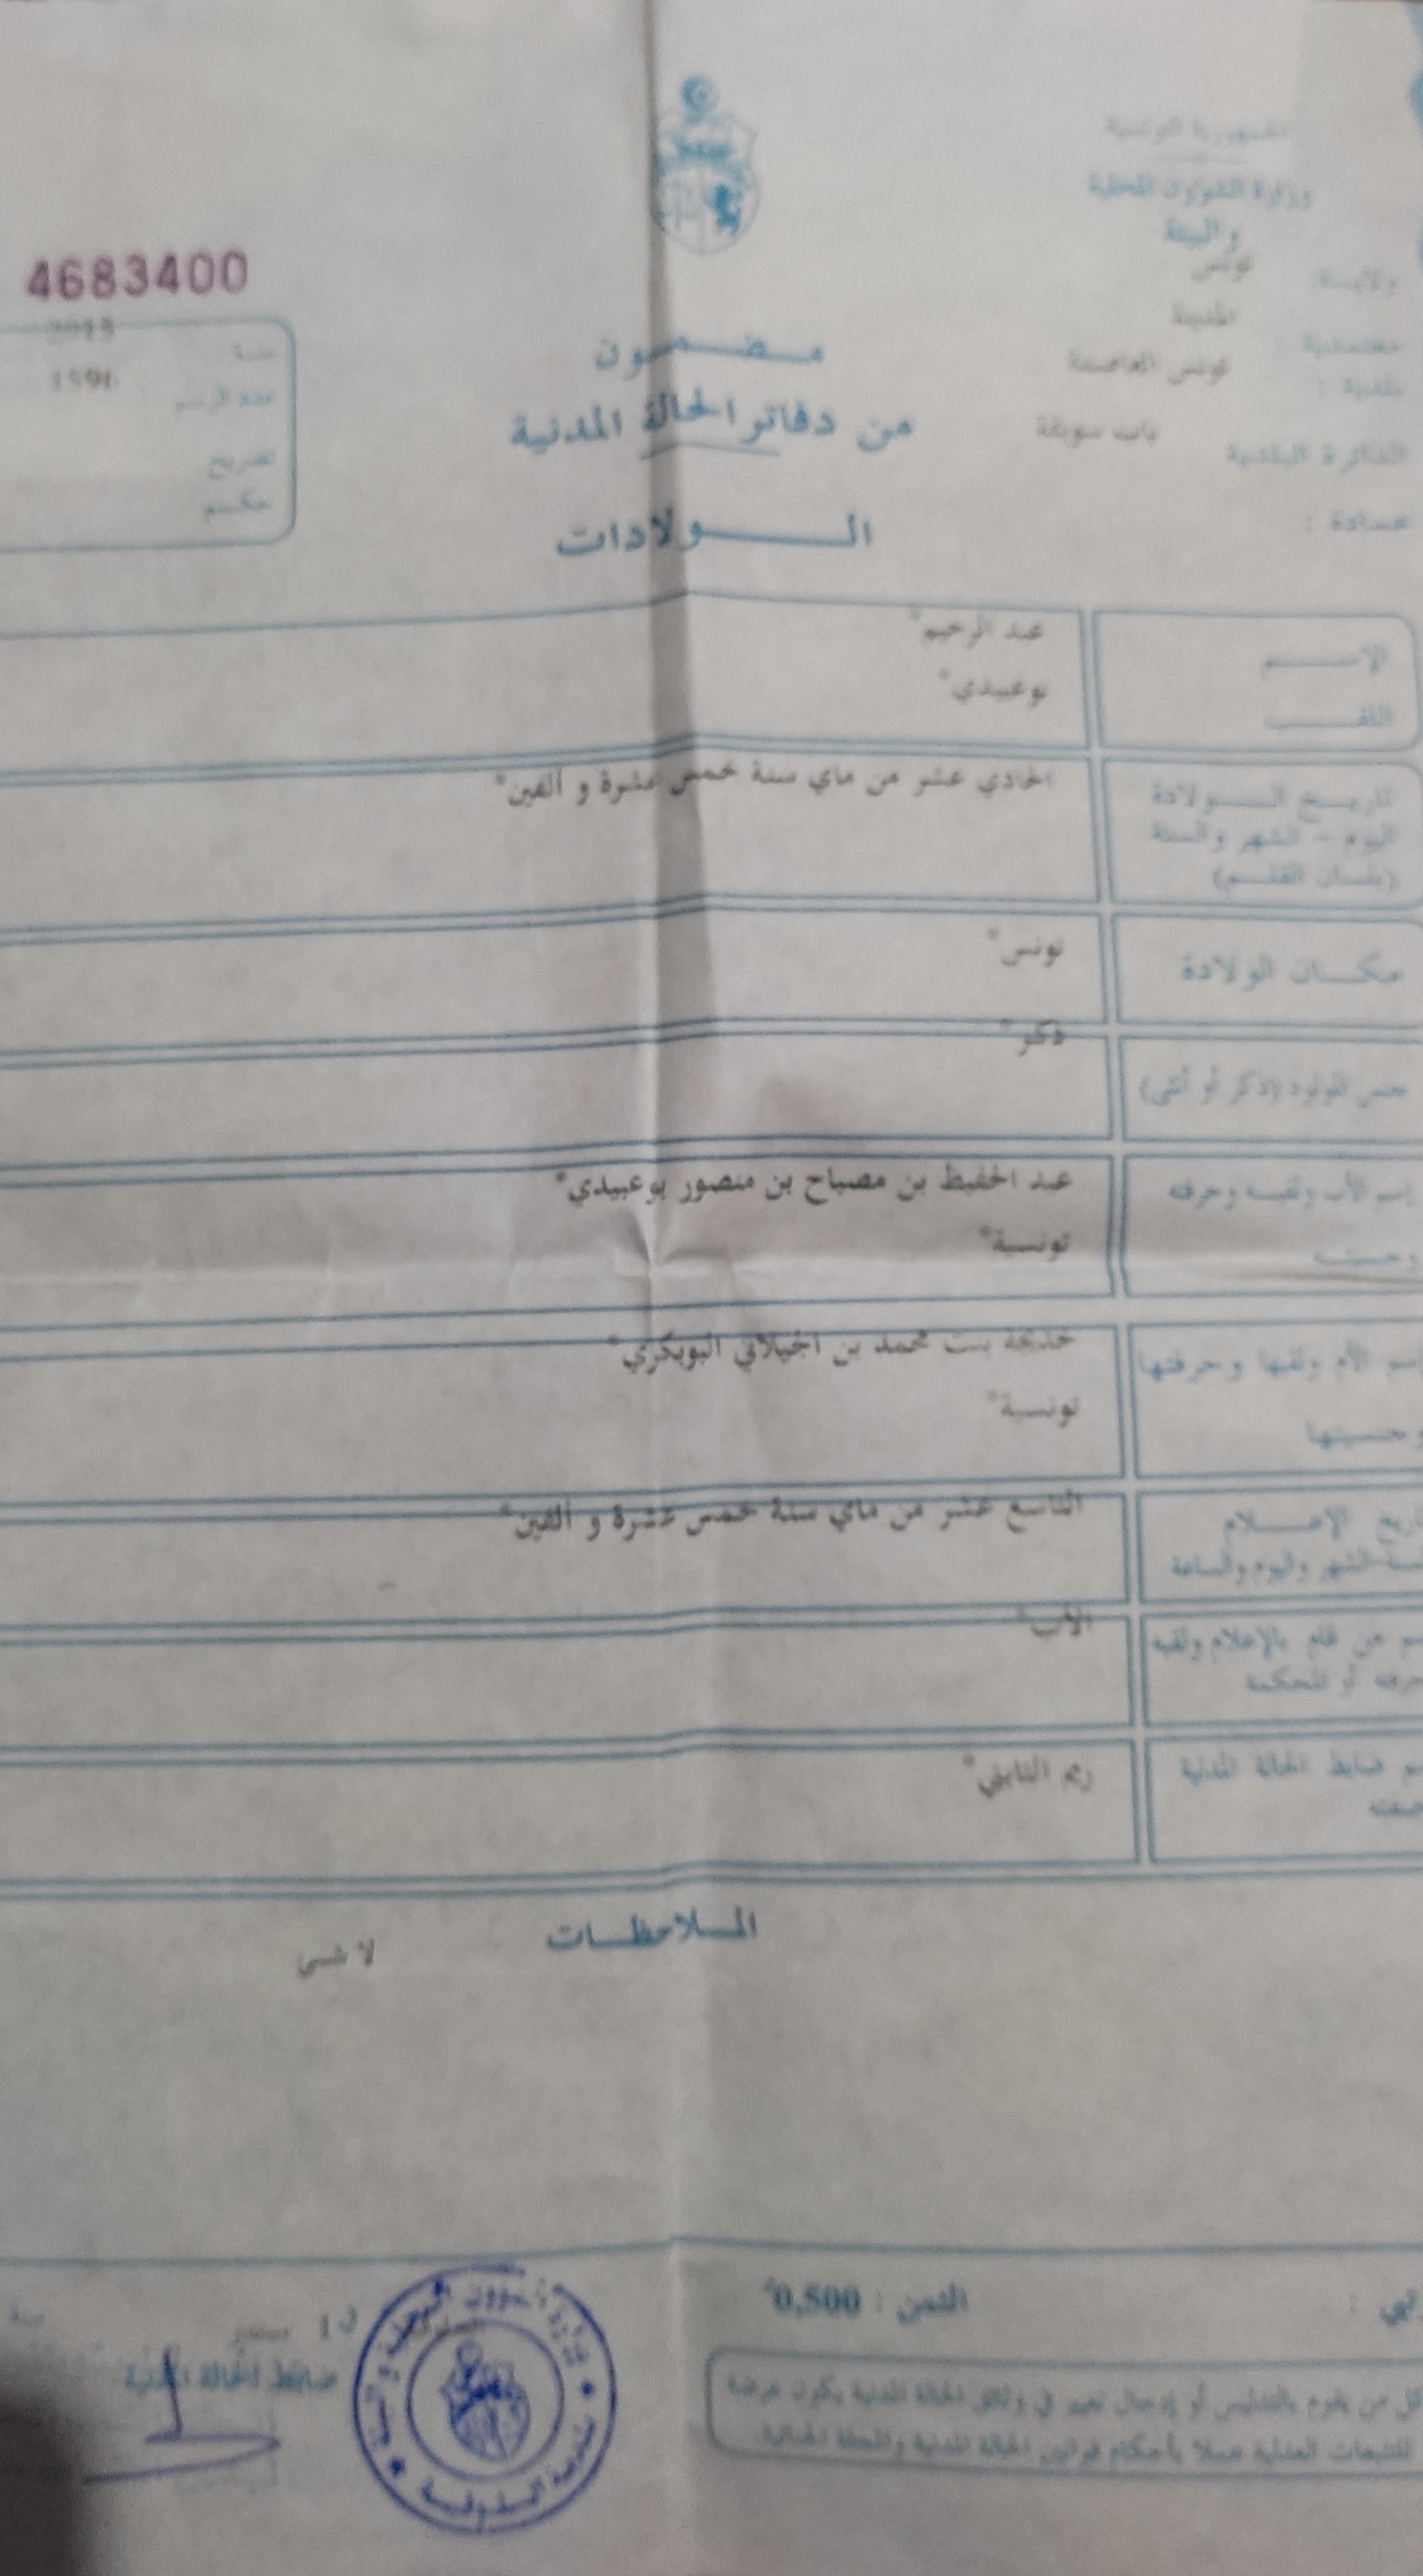 الجمهورية التونسية
وزارة الشؤون المحلية
والبيئة
ولايـة: تونس
معتمدية : المدينة
بلدية : تونس العاصمة
الدائرة البلدية باب سويقة
عمادة :
4683400
سنة 2015
عدد الرسم 1596
تصريح
حكم
مـضـمـون
من دفاتر الحالة المدنية
الـولادات
الإسـم عبد الرحيم*
اللقـب بوعبيدي*
تاريـخ الـولادة الحادي عشر من ماي سنة خمس عشرة و ألفين*
اليوم - الشهر والسنة
(بلسان القلم)
مكـان الولادة تونس*
جنس المولود (ذكر أو أنثى) ذكر*
إسم الأب ولقبـه وحرفته عبد الحفيظ بن مصباح بن منصور بوعبيدي*
وجنسيته تونسية*
إسم الأم ولقبها وحرفتها خديجة بنت محمد بن الجيلاني البوبكري*
وجنسيتها تونسية*
تاريخ الإعـلام التاسع عشر من ماي سنة خمس عشرة و ألفين*
السنة-الشهر واليوم والساعة
إسم من قام بالإعلام ولقبه الأب*
حرفته أو المحكمة
إسم ضابط الحالة المدنية ريم الثابتي*
صفته
المـلاحظـات
لا شـيء
الثمن : 0,500
ضابط الحالة المدنية
كل من يقوم بالتدليس أو إدخال تغيير في وثائق الحالة المدنية يكون عرضة
للتتبعات العدلية عملا بأحكام قوانين الحالة المدنية والمجلة الجنائية